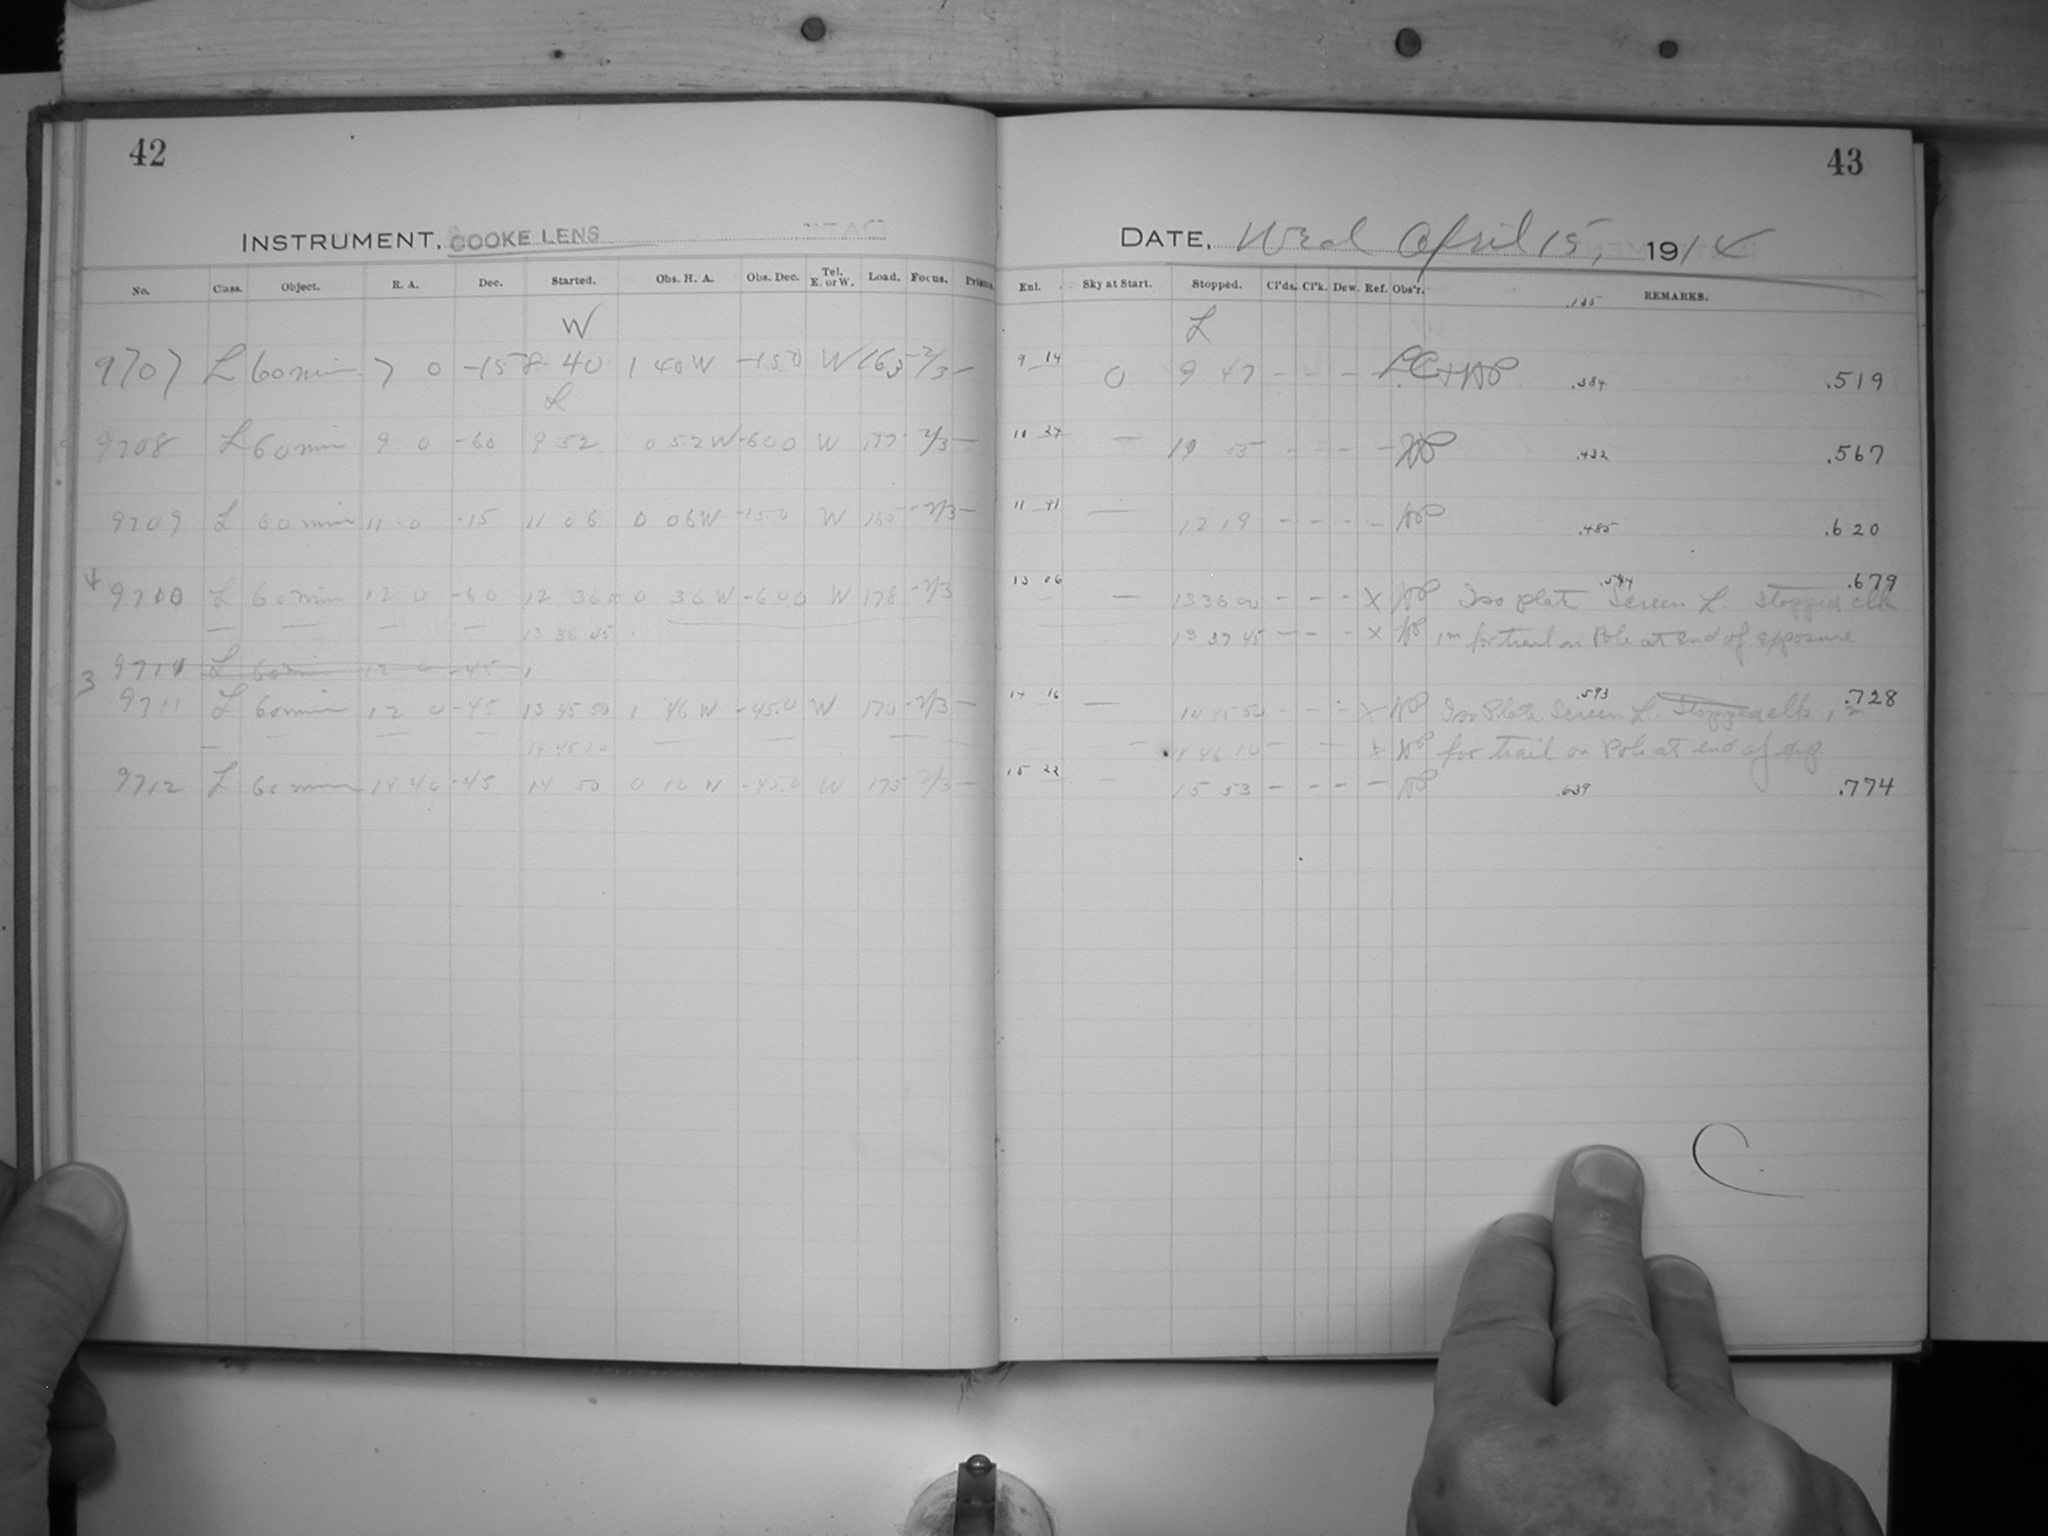 42
43
INSTRUMENT, COOKE LENS
DATE, Wed April 15, 1914
No. Class. Object. R. A. Dec. Started. Obs. H. A. Obs. Dec. Tel. E. or W. Load. Focus. Prism.
Enl. Sky at Start. Stopped. Cl'ds. Cl'k. Dew. Ref. Obs'r. REMARKS.
.135
W
L
9707 L 60 min 7 0 -15 8 40 1 40 W -15.0 W 163 -2/3 —
9 14 0 9 47 - - - - .384 .519
L
9708 L 60 min 9 0 -60 9 52 0 52 W -60.0 W 177 -2/3 —
10 27 — 10 55 - - - - .432 .567
9709 L 60 min 11 0 -15 11 06 0 06 W -15.0 W 165 -2/3 —
11 41 — 12 19 - - - - .485 .620
4 9710 L 60 min 12 0 -60 12 36 00 0 36 W -60.0 W 178 -2/3
13 06 — 13 36 00 - - - X Iso plate Screen L. Stopped clk .544 .679
13 36 45
13 37 45 - - - X 1m for trail on Pole at end of exposure
9711 L 60 min 12 0 -45
3 9711 L 60 min 12 0 -45 13 45 50 1 46 W -45.0 W 170 -2/3 —
14 16 — 14 45 50 - - - X Iso Plate Screen L. Stopped clk 1m .593 .728
14 45 10
— 14 46 10 - - X for trail on Pole at end of exp
9712 L 60 min 14 40 -45 14 50 0 10 W -45.0 W 175 -2/3 —
15 22 — 15 53 - - - - .639 .774
C